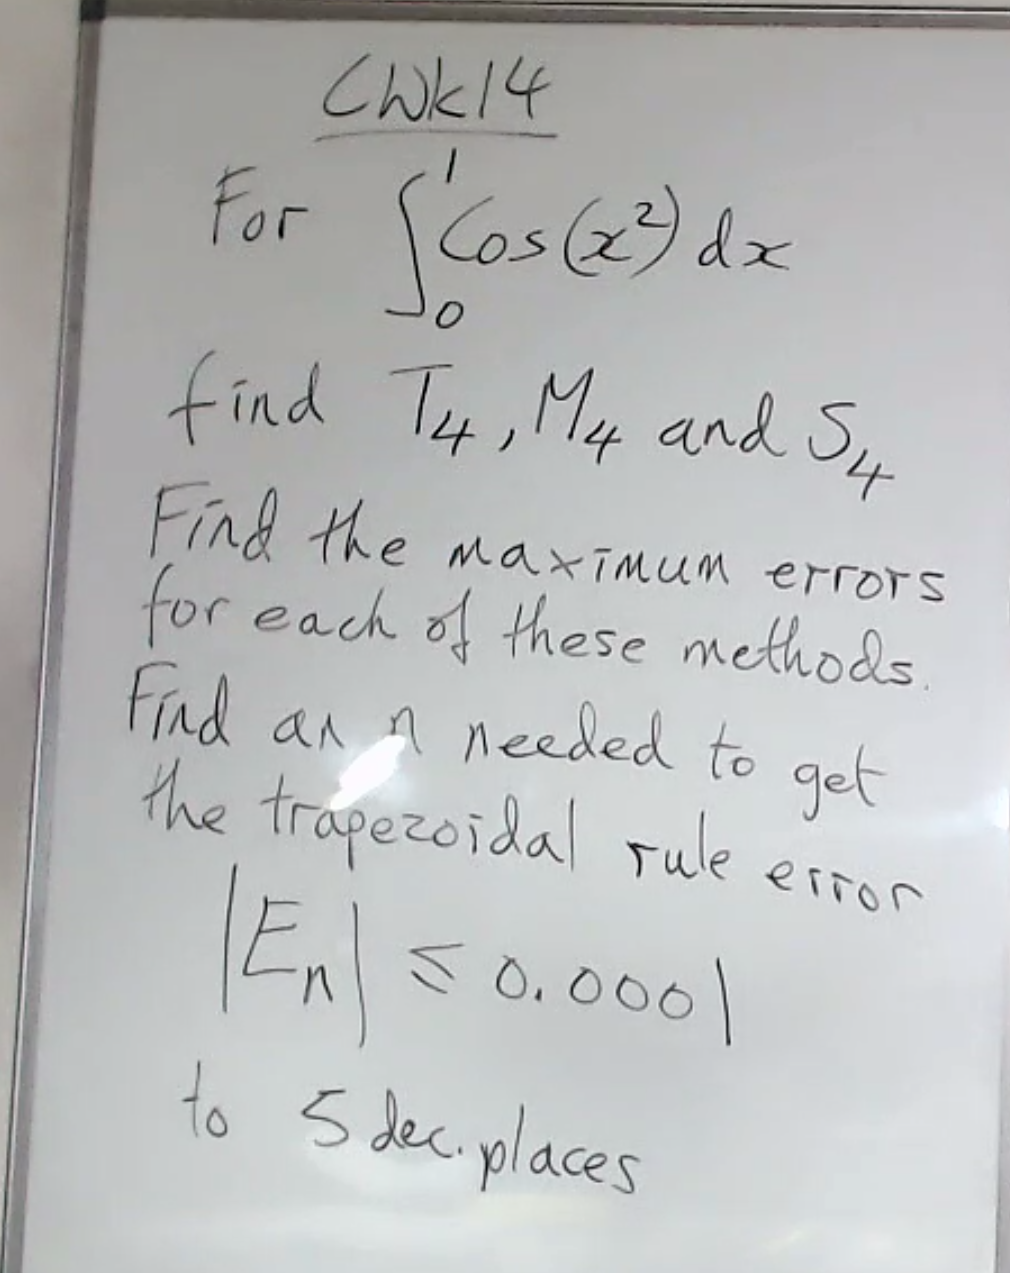 CWk14
For ∫₀¹ Cos(x²) dx
find T₄, M₄ and S₄
Find the maximum errors
for each of these methods.
Find an n needed to get
the trapezoidal rule error
|Eₙ| ≤ 0.0001
to 5 dec. places